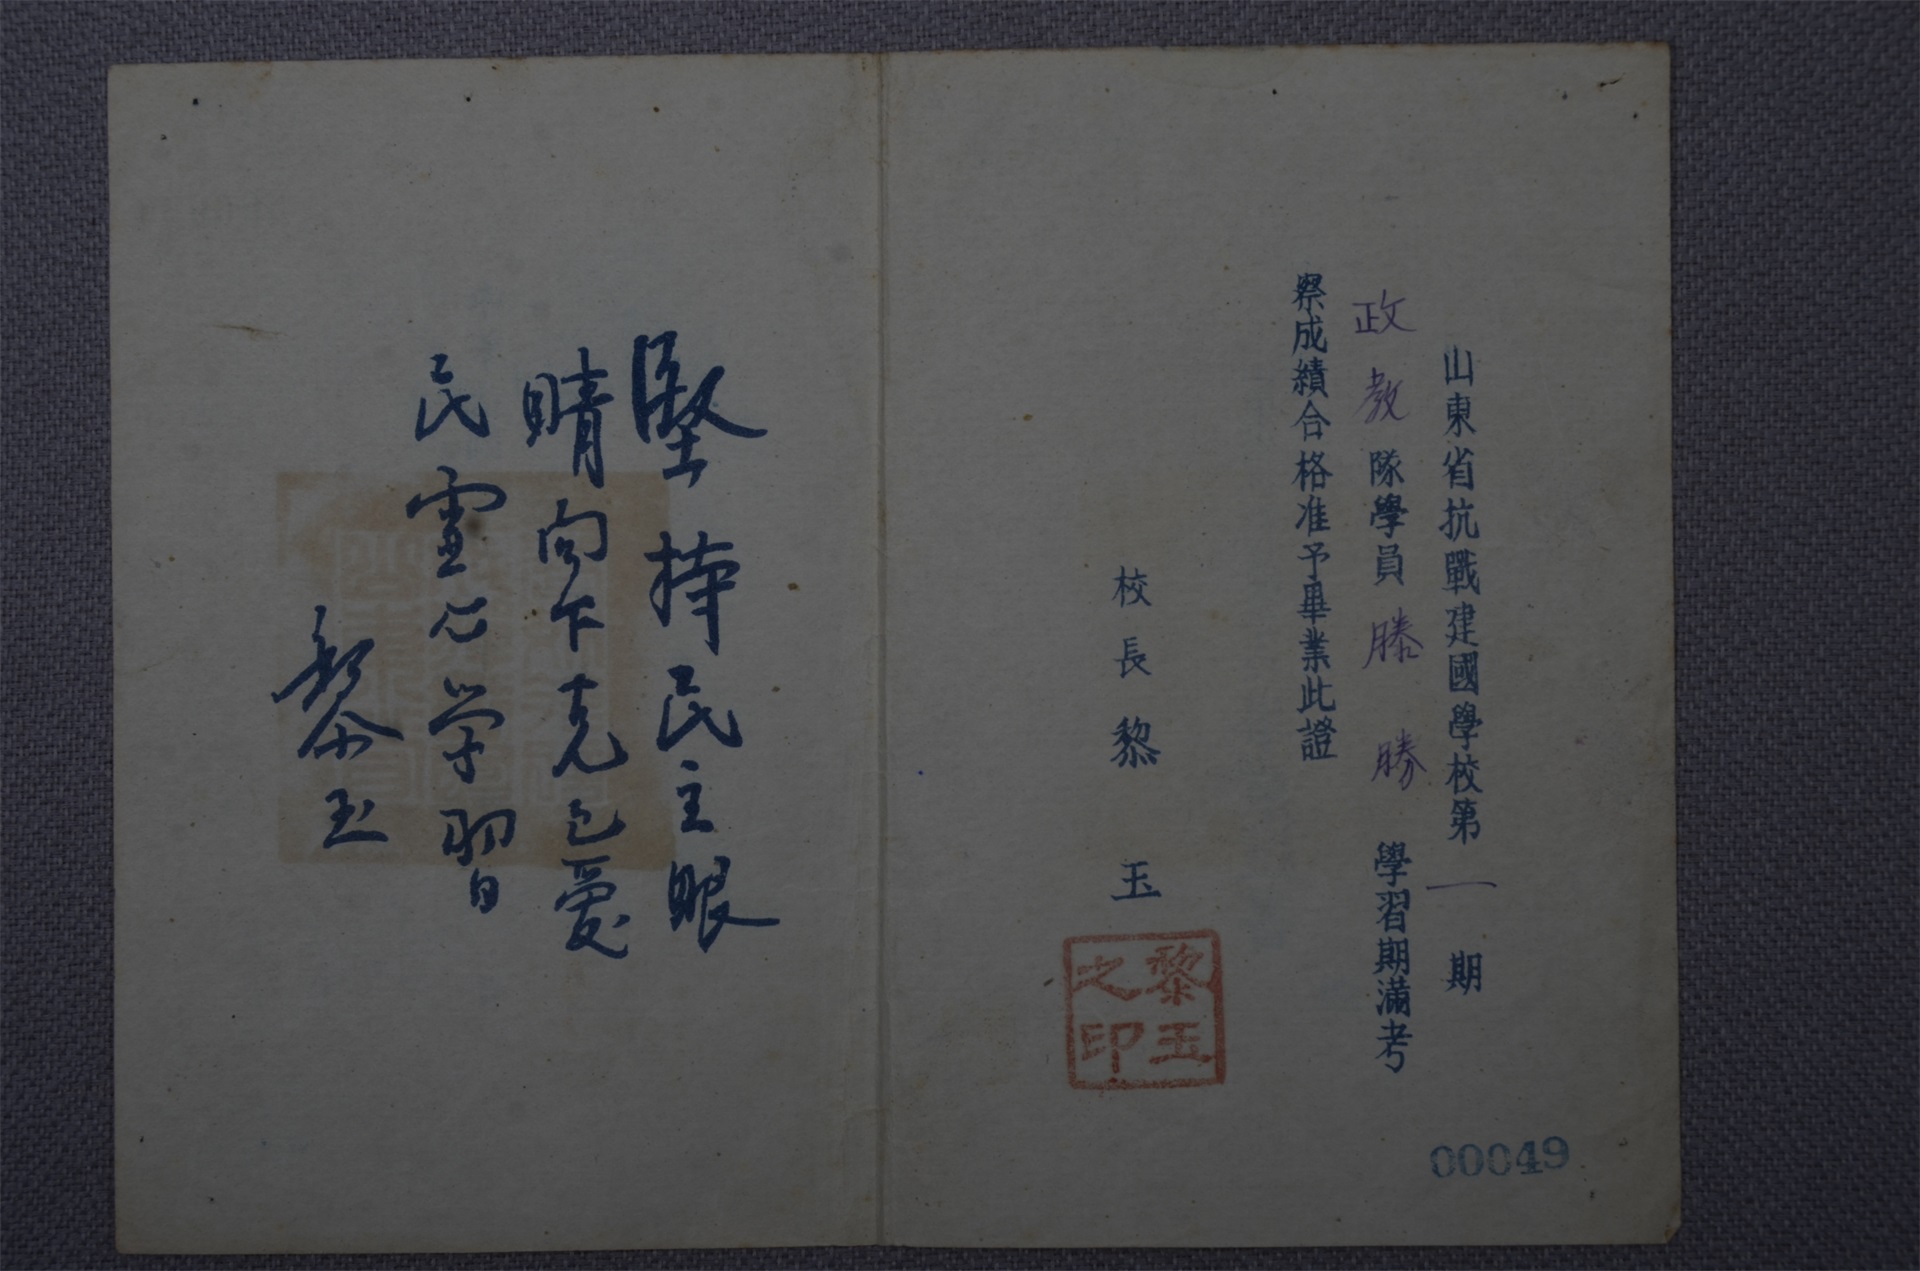 山東省抗戰建國學校第一期
政教隊學員滕勝學習期滿考
察成績合格准予畢業此證
校長黎玉
黎玉之印
00049
堅持民主眼
睛向下克己愛
民虛心学習
黎玉